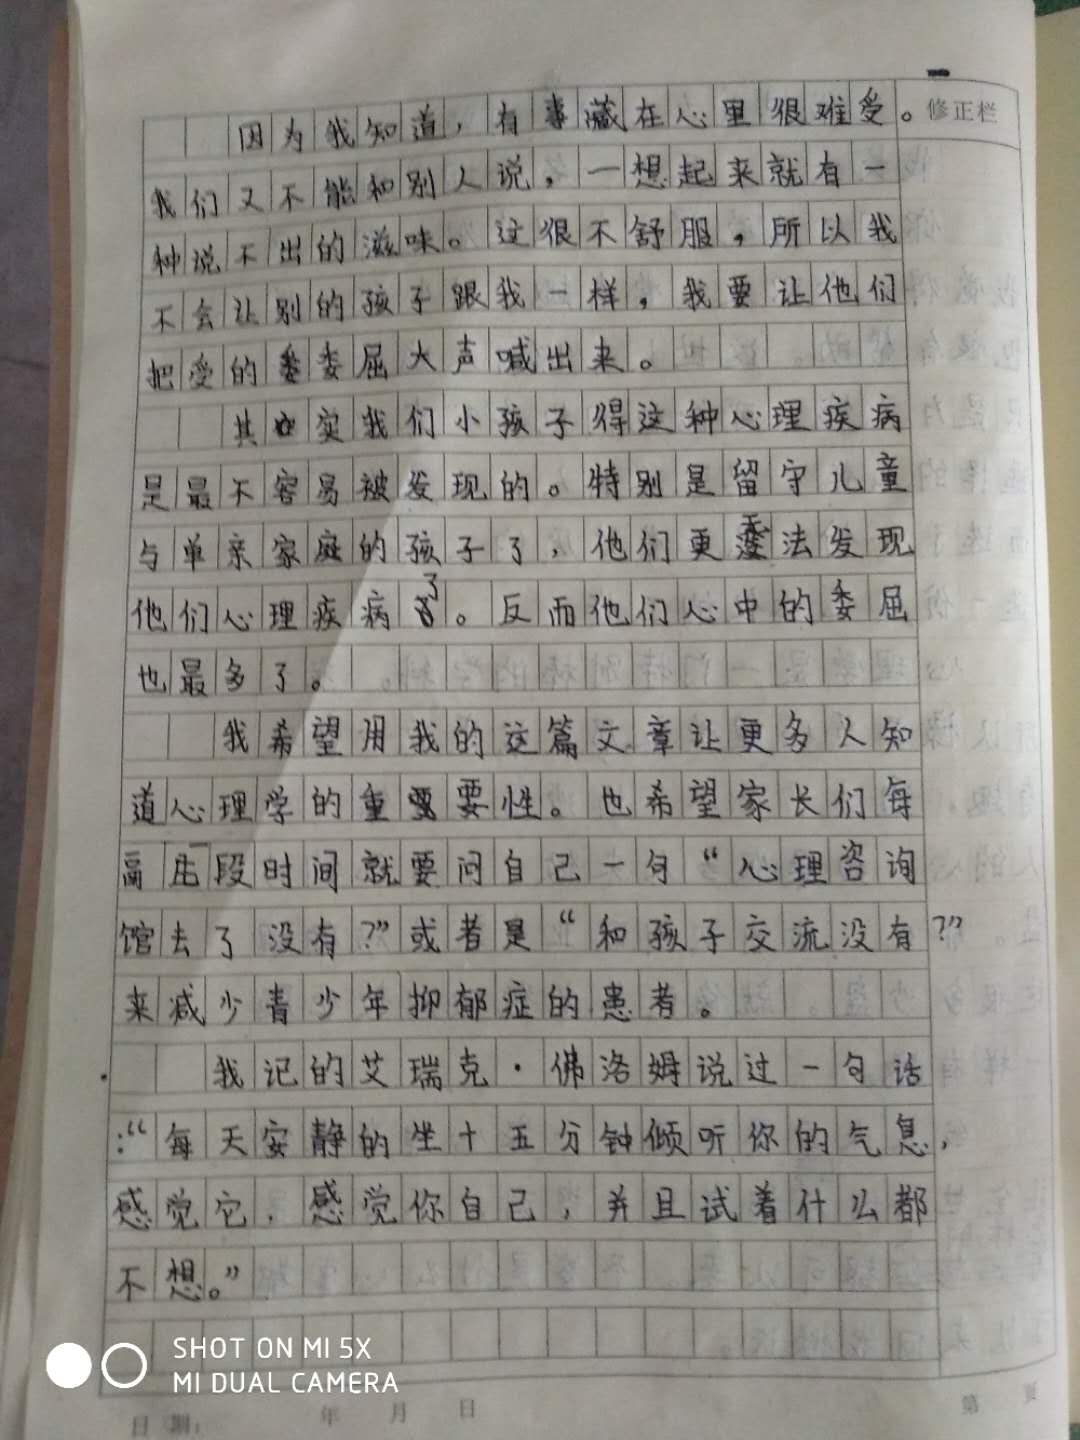 修正栏
因为我知道，有事藏在心里很难受。
我们又不能和别人说，一想起来就有一
种说不出的滋味。这很不舒服，所以我
不会让别的孩子跟我一样，我要让他们
把受的委屈大声喊出来。
其实我们小孩子得这种心理疾病
是最不容易被发现的。特别是留守儿童
与单亲家庭的孩子了，他们更无法发现
他们心理疾病了。反而他们心中的委屈
也最多了。
我希望用我的这篇文章让更多人知
道心理学的重要性。也希望家长们每
隔一段时间就要问自己一句“心理咨询
馆去了没有？”或者是“和孩子交流没有？”
来减少青少年抑郁症的患者。
我记的艾瑞克·佛洛姆说过一句话
：“每天安静的坐十五分钟倾听你的气息，
感觉它，感觉你自己，并且试着什么都
不想。”
SHOT ON MI 5X
MI DUAL CAMERA
日期： 年 月 日
第 页